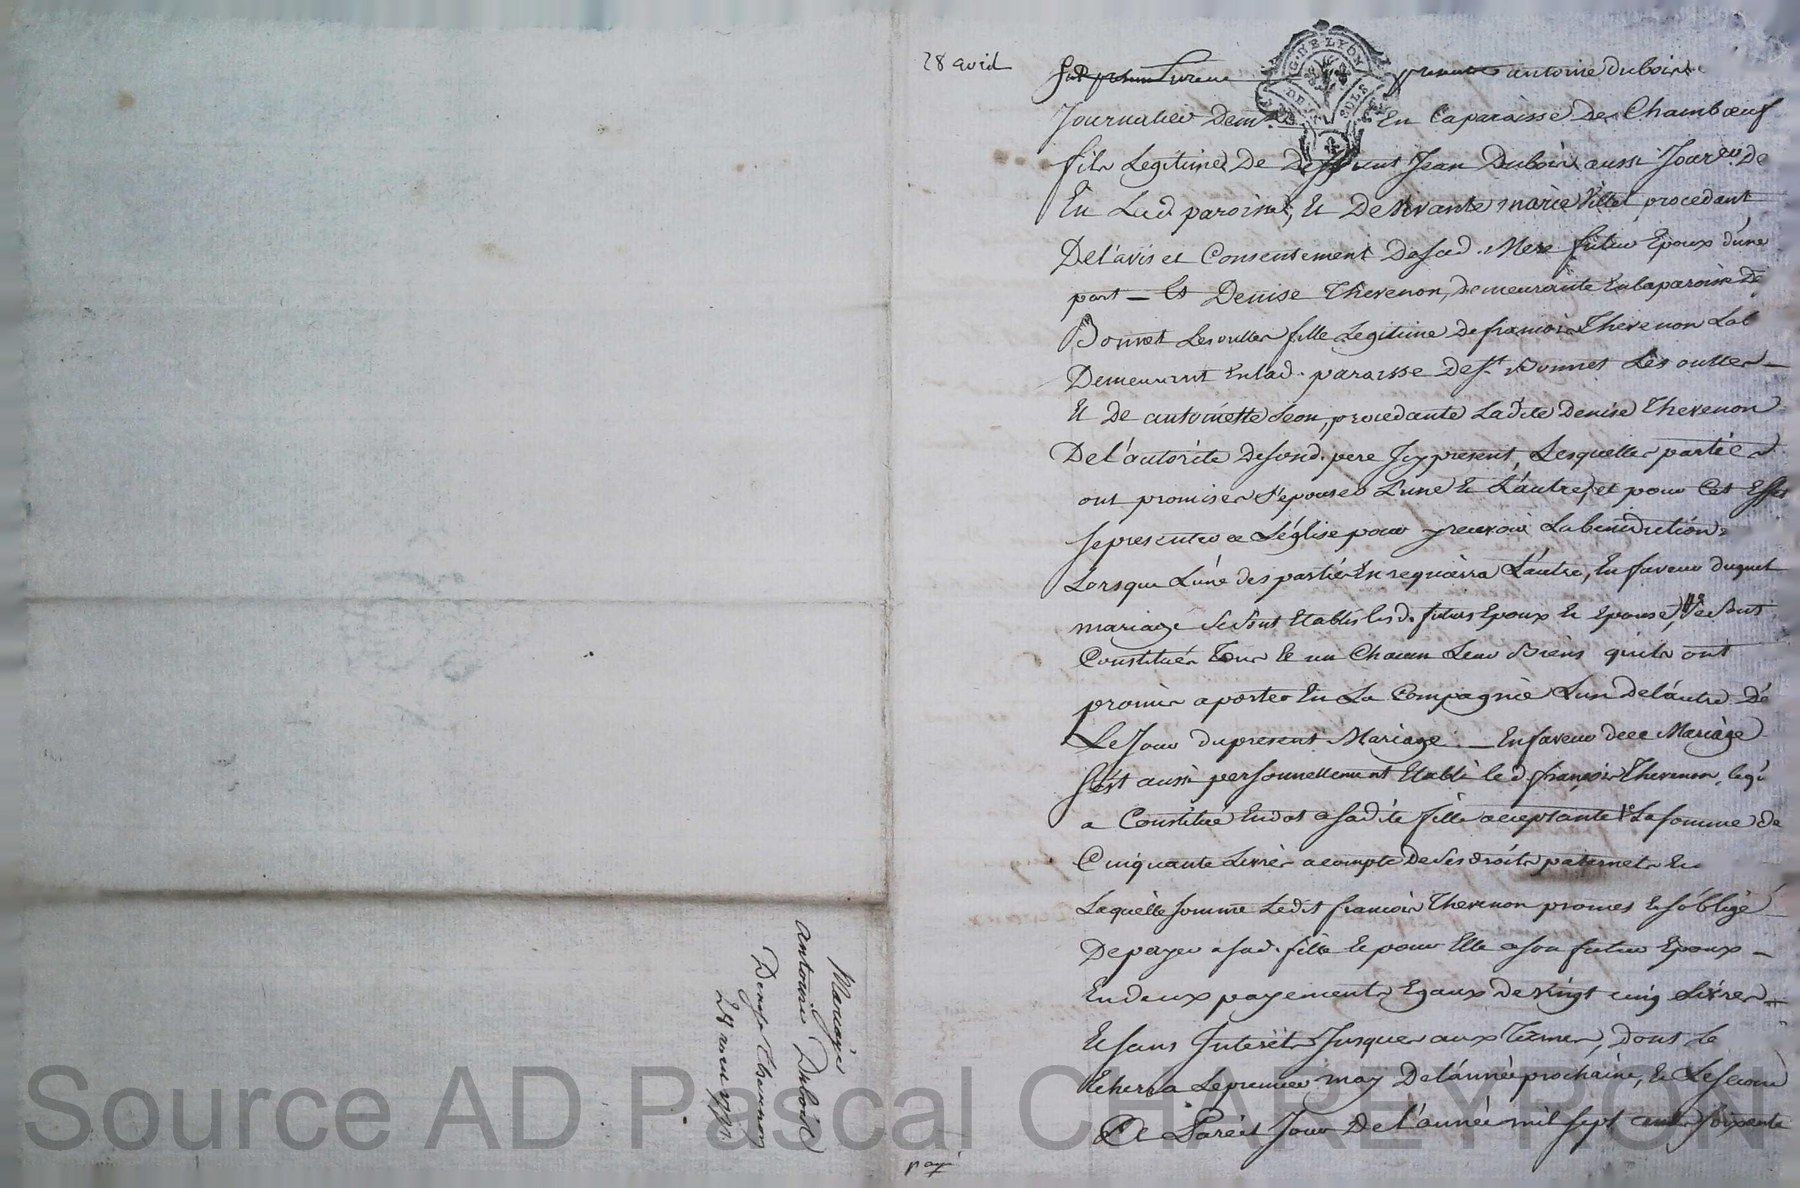 28 avril
antoine dubois
Journalier Demt En La paroisse De Chambœuf
fils Legitime De Deffunt Jean Dubois aussi Jour.er De
En Lad paroisse, Et De vivante marie procedant
De l'avis et Consentement De sad. Mere futur Epoux d'une
part — Et Denise Thevenon, Demeurante En la paroisse De
Bonnet Les oulles fille Legitime de francois Thevenon Lab
Demeurant En lad. paroisse De st. Bonnet Les oulles —
Et De antoinette Leon, procedante Ladite Denise Thevenon
De l'autorité De sond. pere Icy present, Lesquelles parties
ont promises s'epouser L'une Et L'autre, et pour Cet Effet
se presenter a L'église pour y recevoir La benediction
Lorsque L'une des parties En requerra L'autre, En faveur duquel
mariage Se sont Etablis lesd. futurs Epoux Et Epouse, Se sont
Constitués Tous Et un Chacun Leur Biens qu'ils ont
promis aporter En La Compagnie L'un De l'autre Dé
Le Jour du present Mariage. — En faveur de ce Mariage
s'est aussi personnellement Etabli led. françois Thevenon, lequ
a Constitué En dot a sadite fille acceptante La somme de
Cinquante Livres acompte De Ses droits paternels Et
Laquelle somme Ledit francois Thevenon promet Et s'oblige
De payer a sad. fille Et pour Elle a son futur Epoux —
En deux payements Egaux de vingt cinq Livres —
Et sans Interêts Jusques aux Termes, dont le
Echerra Le premier may De l'année prochaine, Et Le second
A Pareil Jour De l'année mil sept cent soixante
payé
Mariage
antoine Dubois
Denise Thevenon
28
Source AD Pascal CHAREYRON
G. DE LYON